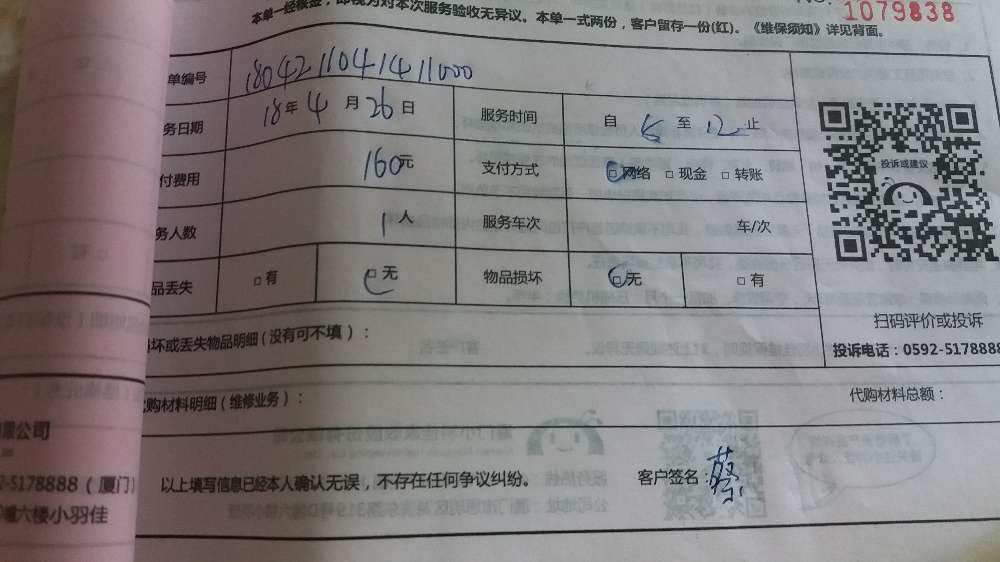 NO.
1079838
本单一经核签，即视为对本次服务验收无异议。本单一式两份，客户留存一份(红)。《维保须知》详见背面。
单编号 180421104141 1000
务日期 18年 4 月 26 日 服务时间 自 至 12 止
付费用 160元 支付方式 □网络 □现金 □转账
务人数 1 人 服务车次 车/次
品丢失 □有 □无 物品损坏 □无 □有
投诉或建议
扫码评价或投诉
投诉电话：0592-5178888
坏或丢失物品明细（没有可不填）：
代购材料明细（维修业务）： 代购材料总额：
公司
5178888（厦门）
六楼小羽佳
以上填写信息已经本人确认无误，不存在任何争议纠纷。 客户签名：蔡